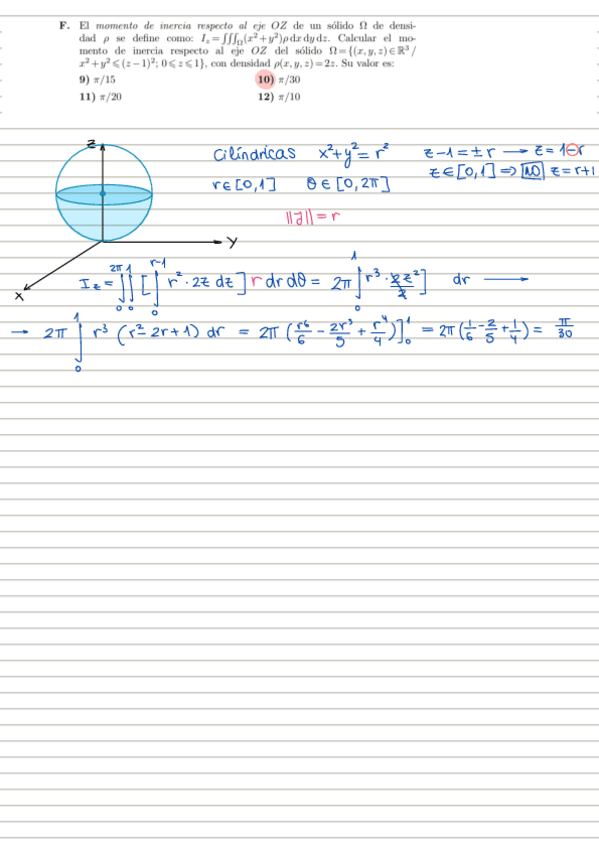 F. El momento de inercia respecto al eje OZ de un sólido Ω de densi-
dad ρ se define como: I_z=∭_Ω(x²+y²)ρ dx dy dz. Calcular el mo-
mento de inercia respecto al eje OZ del sólido Ω={(x,y,z)∈ℝ³/
x²+y²⩽(z−1)²; 0⩽z⩽1}, con densidad ρ(x,y,z)=2z. Su valor es:
9) π/15 10) π/30
11) π/20 12) π/10
z
Cilíndricas x²+y²=r² z-1=±r → z=1-r
r∈[0,1] θ∈[0,2π] z∈[0,1] ⇒ NO z=r+1
||J||=r
Y
X
I_z = ∫₀^2π ∫₀^1 [∫₀^r-1 r²·2z dz] r dr dθ = 2π ∫₀^1 r³·2z²/2] dr →
→ 2π ∫₀^1 r³ (r²-2r+1) dr = 2π (r⁶/6 - 2r⁵/5 + r⁴/4)]₀^1 = 2π(1/6 - 2/5 + 1/4) = π/30